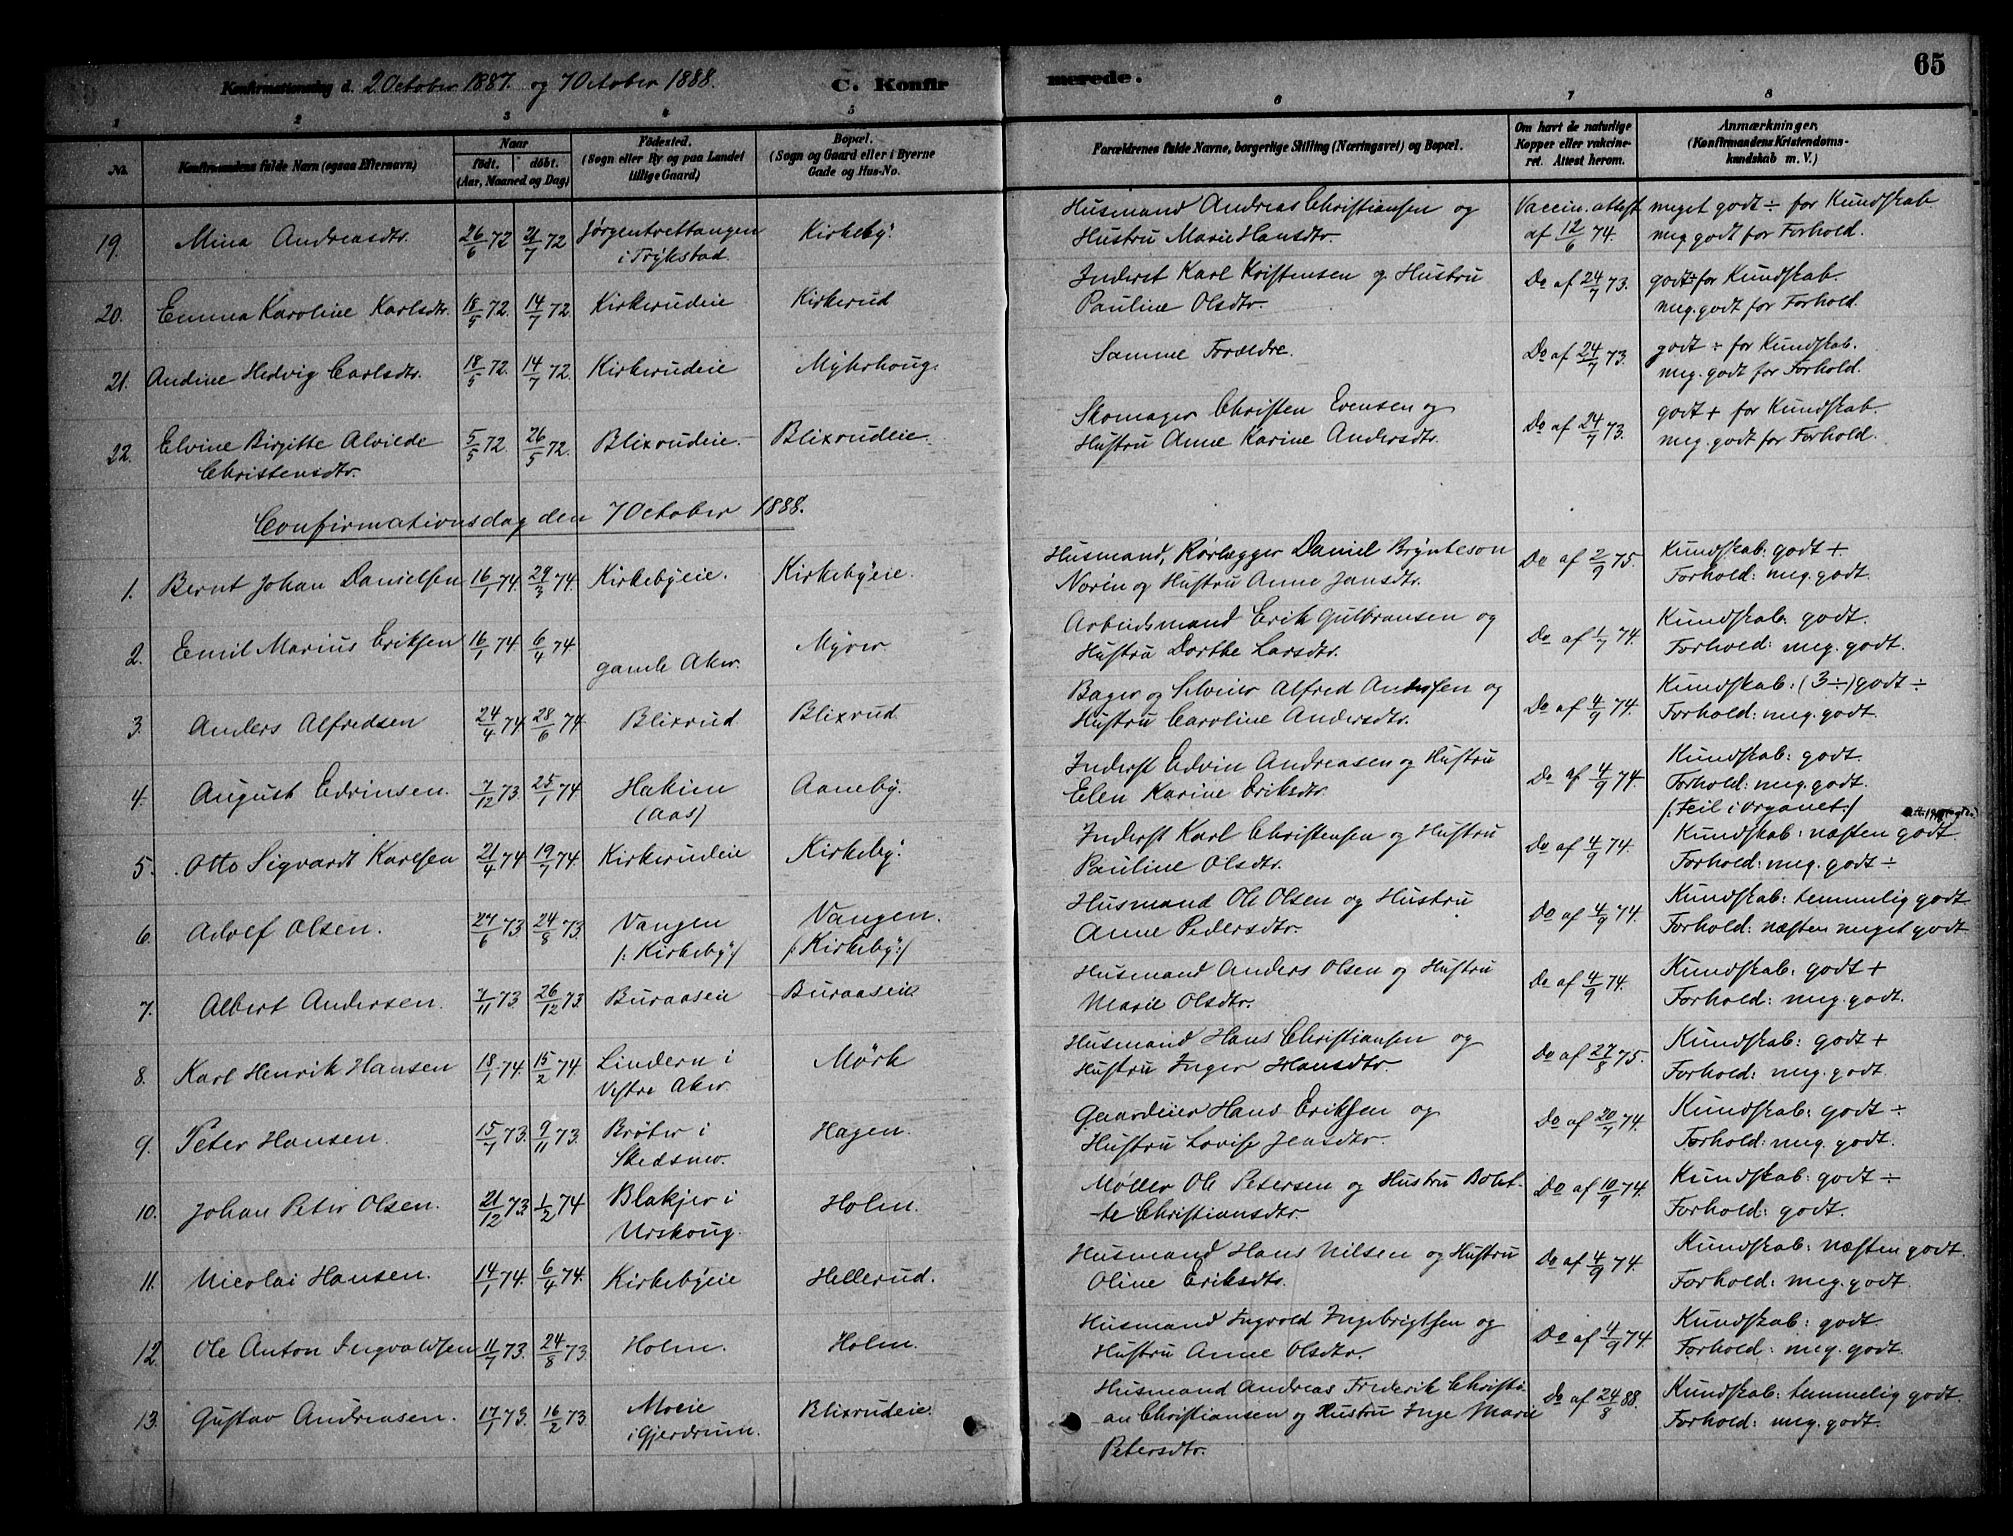 65
Konfirmationsdag d. 2 October 1887. og 7 October 1888. C. Konfirmerede.
1 2 3 4 5 6 7 8
No. Konfirmandens fulde Navn (ogsaa Efternavn) Naar født. døbt. (Aar, Maaned og Dag) Fødested. (Sogn eller By og paa Landet tillige Gaard) Bopæl. (Sogn og Gaard eller i Byerne Gade og Hus-No. Forældrenes fulde Navne, borgerlige Stilling (Næringsvei) og Bopæl. Om havt de naturlige Kopper eller vakcineret. Attest herom. Anmærkninger. (Konfirmandens Kristendomskundskab m. V.)
19. Mina Andreasdtr. 26/6 72 21/7 72 Jørgentrettangen i Trykstad. Kirkeby. Husmand Andreas Christiansen og Vaccin. attest meget godt ÷ for Kundskab
Hustru Marie Hansdtr. af 12/6 74. meg. godt for Forhold.
20. Emma Karoline Karlsdtr. 18/5 72. 14/7 72. Kirkerudeie Kirkerud Inderst Karl Kristensen og Hustru Do af 24/7 73. godt ÷ for Kundskab.
Pauline Olsdtr. meg. godt for Forhold.
21. Andine Hedvig Carlsdtr. 18/5 72. 14/7 72. Kirkerudeie Myhrhoug. Samme Forældre. Do af 24/7 73. godt ÷ for Kundskab.
meg. godt for Forhold.
22. Elvine Birgitte Alvilde 5/5 72. 26/5 72. Blixrudeie. Blixrudeie. Skomager Christen Evensen og Do af 24/7 73. godt + for Kundskab.
Christensdtr. Hustru Anne Karine Andersdtr. meg. godt for Forhold.
Confirmationsdag den 7 October 1888.
1. Bernt Johan Danielsen 16/1 74. 29/3 74. Kirkebyeie. Kirkebyeie. Husmand, Rørlægger Daniel Brynteson Do af 2/9 75. Kundskab: godt +.
Norén og Hustru Anne Jansdtr. Forhold: meg. godt.
2. Emil Marius Eriksen 16/1 74 6/4 74 gamle Aker. Myrer Arbeidsmand Erik Gulbransen og Do af 1/7 74. Kundskab: godt.
Hustru Dorthe Larsdtr. Forhold: meg. godt.
3. Anders Alfredsen 24/4 74. 28/6 74. Blixrud Blixrud Bager og Selveier Alfred Andersen og Do af 4/9 74. Kundskab: (3 ÷) godt ÷
Hustru Caroline Andersdtr. Forhold: meg. godt.
4. August Edvinsen. 7/12 73. 25/1 74. Hakim (Aas) Aaneby. Inderst Edvin Andreasen og Hustru Do af 4/9 74. Kundskab: godt.
Elen Karine Eriksdtr. Forhold: meg. godt.
/: Feil i organet :/
5. Otto Sigvardt Karlsen 21/4 74 19/7 74. Kirkerudeie Kirkeby. Inderst Karl Christensen og Hustru Do af 4/9 74. Kundskab: næsten godt.
Pauline Olsdtr. Forhold: meg. godt ÷
6. Adolf Olsen. 27/6 73 24/8 73. Vangen /: Kirkeby :/ Vangen. /: Kirkeby :/ Husmand Ole Olsen og Hustru Do af 4/9 74. Kundskab: temmelig godt
Anne Pedersdtr. Forhold: næsten meget godt.
7. Albert Andersen. 7/11 73 26/12 73. Buraaseie Buraaseie Husmand Anders Olsen og Hustru Do af 4/9 74. Kundskab: godt +
Marie Olsdtr. Forhold: meg. godt.
8. Karl Henrik Hansen 18/1 74. 15/2 74. Lindern i Vestre Aker. Mørk Husmand Hans Christiansen og Do af 27/8 75. Kundskab: godt +
Hustru Inger Hansdtr. Forhold: meg. godt.
9. Peter Hansen. 15/7 73. 9/11 73. Brøter i Skedsmo. Hagen. Gaardeier Hans Eriksen og Do af 20/7 74. Kundskab: godt ÷
Hustru Lovise Jensdtr. Forhold: meg. godt.
10. Johan Peter Olsen. 21/12 73. 1/2 74 Blakjer i Urskoug. Holm. Møller Ole Petersen og Hustru Bolet- Do af 10/9 74. Kundskab: godt ÷
te Christiansdtr. Forhold: godt.
11. Nicolai Hansen. 14/1 74. 6/4 74. Kirkebyeie Hellerud. Husmand Hans Nilsen og Hustru Do af 4/9 74. Kundskab: næsten godt.
Oline Eriksdtr. Forhold: meg. godt.
12. Ole Anton Ingvaldsen 11/7 73. 24/8 73. Holm. Holm. Husmand Ingvold Ingebrigtsen og Do af 4/9 74. Kundskab: godt.
Hustru Anne Olsdtr. Forhold: meg. godt.
13. Gustav Andreasen. 17/1 73. 16/2 73. Moeie i Gjerdrum. Blixrudeie. Husmand Andreas Frederik Christi- Do af 24/8 88. Kundskab: temmelig godt
an Christiansen og Hustru Inge Marie Forhold: meg. godt.
Petersdtr.